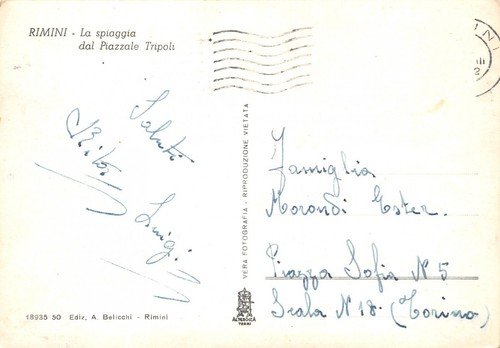 RIMINI - La spiaggia
dal Piazzale Tripoli
Saluti
Luigi
VERA FOTOGRAFIA - RIPRODUZIONE VIETATA
Famiglia
Morandi Ester.
Piazza Sofia N 5
Scala N 18. (Torino)
18935 50 Ediz. A. Belicchi - Rimini
TERNI